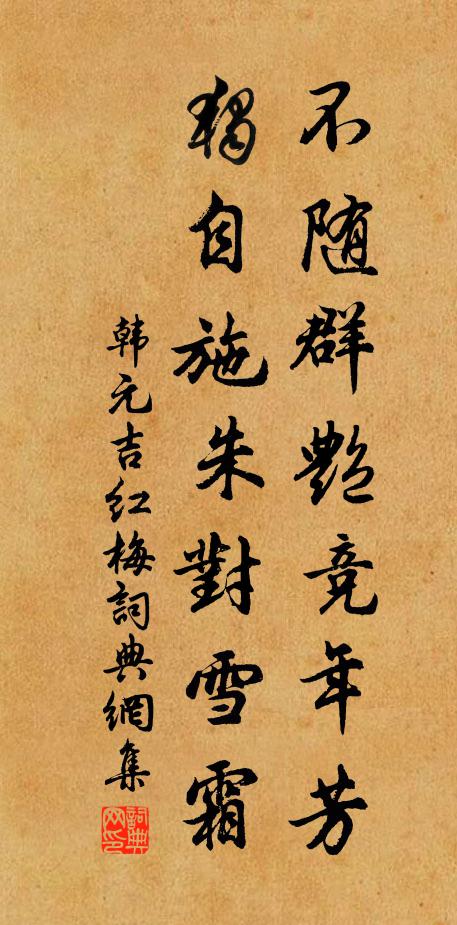 不随群艷竞年芳
獨自施朱對雪霜
韩元吉红梅詞典網集
詞典网印